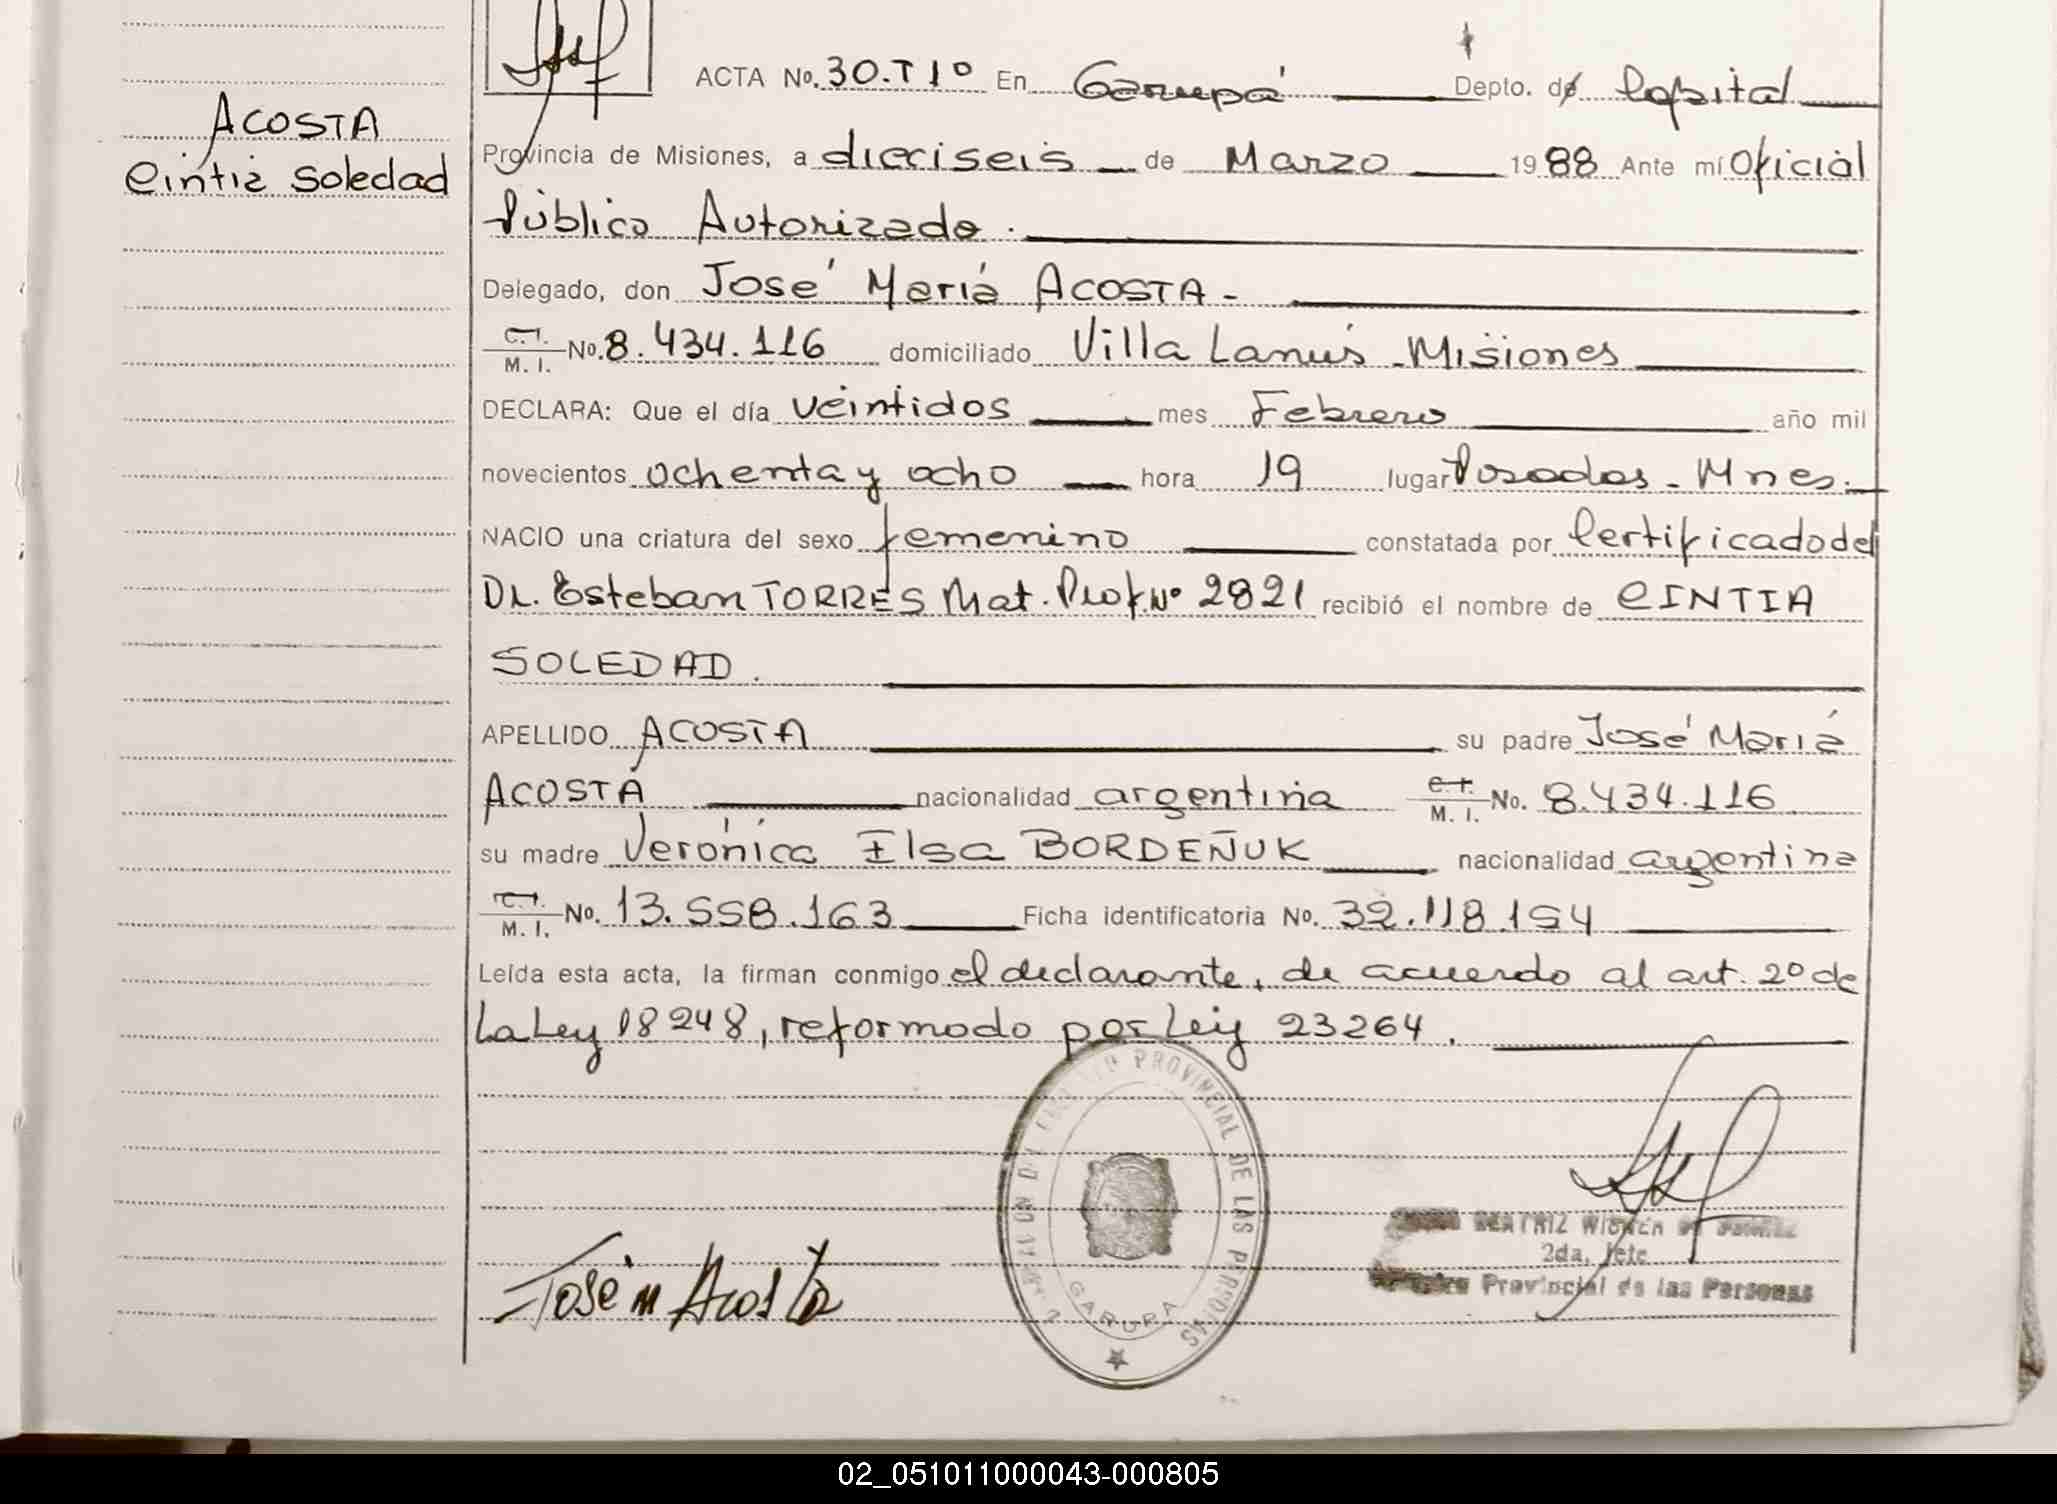 ACTA No. 30.T1º En Garupá Depto. de Capital
ACOSTA
Cintia Soledad
Provincia de Misiones, a dieciseis de Marzo 1988 Ante mí Oficial
Público Autorizado.
Delegado, don José María ACOSTA-
C.I. M. I. No. 8.434.116 domiciliado Villa Lanús-Misiones
DECLARA: Que el día veintidos mes Febrero año mil
novecientos ochenta y ocho hora 19 lugar Posadas-Mnes.
NACIO una criatura del sexo femenino constatada por Certificado del
Dr. Esteban TORRES Mat. Prof. Nº 2821 recibió el nombre de CINTIA
SOLEDAD.
APELLIDO ACOSTA su padre José María
ACOSTA nacionalidad argentina C.I. M. I. No. 8.434.116
su madre Verónica Elsa BORDEÑUK nacionalidad argentina
C.I. M. I. No. 13.558.163 Ficha identificatoria No. 32.118.154
Leída esta acta, la firman conmigo el declarante, de acuerdo al art. 2º de
La Ley 18248, reformado por Ley 23264.
PROVINCIAL DE LAS PERSONAS
GARUPA
José M Acosta
BEATRIZ
2da. Jefe
Provincial de las Personas
02_051011000043-000805